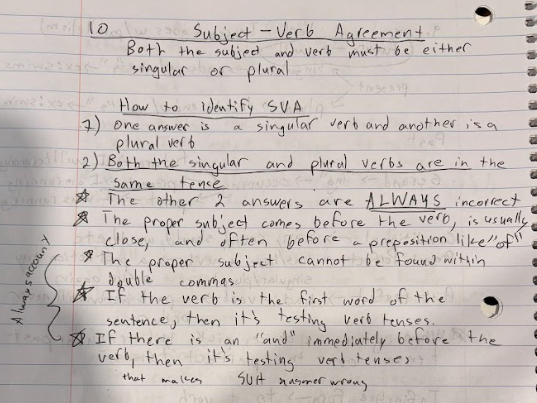 10. Subject-Verb Agreement
Both the subject and verb must be either
singular or plural
How to identify SVA
1) one answer is a singular verb and another is a
plural verb
2) Both the singular and plural verbs are in the
same tense
The other 2 answers are ALWAYS incorrect
The proper subject comes before the verb, is usually
close, and often before a preposition like "of"
The proper subject cannot be found within
double commas
If the verb is the first word of the
sentence, then it's testing verb tenses.
If there is an "and" immediately before the
verb, then it's testing verb tenses
that makes wrong
Always